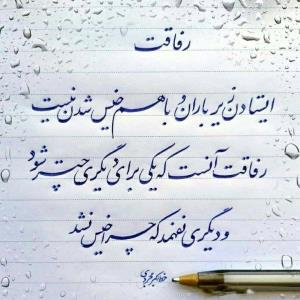 رفاقت
ایستادن زیر باران و با هم خیس شدن نیست
رفاقت آنست که یکی برای دیگری چتر شود
و دیگری نفهمد که چرا خیس نشد